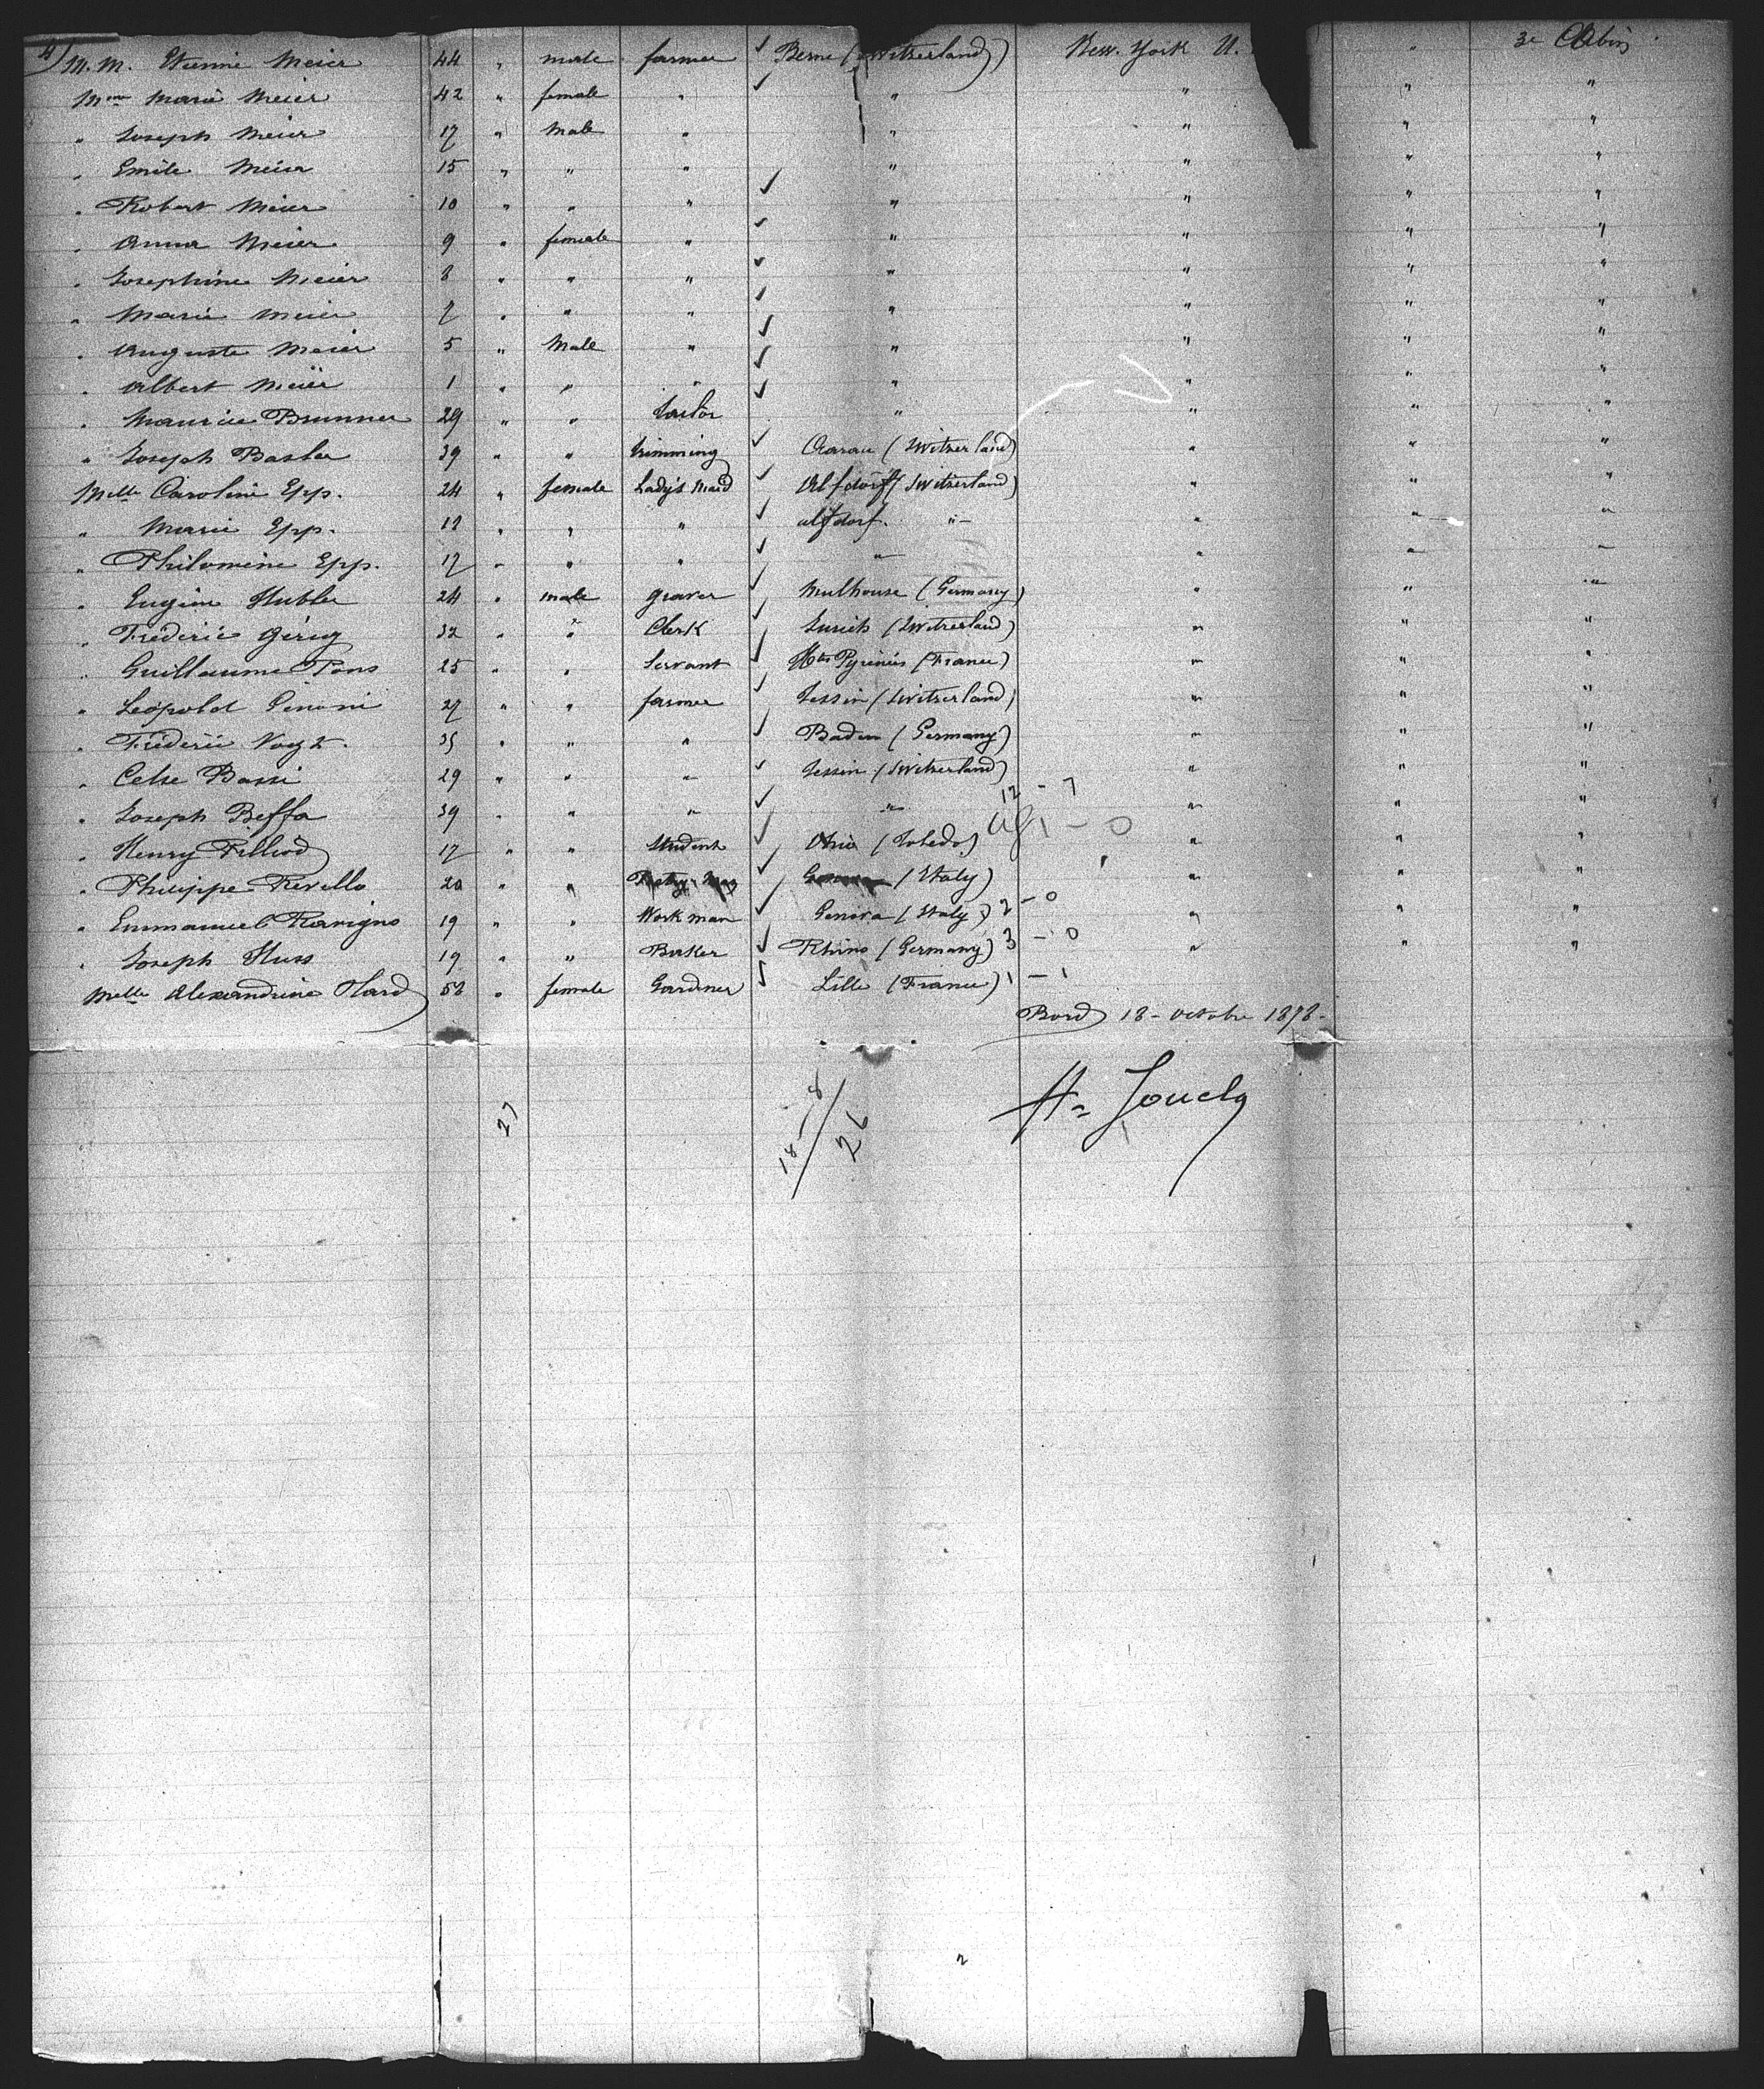 4)
M. M. Etienne Meier 44 " male farmer Berne (Switzerland) New-York U. " 3e Cabin
Mme Marie Meier 42 " female " " " " "
" Joseph Meier 17 " Male " " " " "
" Emile Meier 15 " " " " " " "
" Robert Meier 10 " " " " " " "
" Anna Meier 9 " female " " " " "
" Josephine Meier 8 " " " " " " "
" Marie Meier 7 " " " " " " "
" Auguste Meier 5 " Male " " " " "
" Albert Meier 1 " " " " " " "
" Maurice Brunner 29 " " tailor " " " "
" Joseph Basler 39 " " trimming Aarau (Switzerland) " " "
Melle Caroline Epp. 24 " female Lady's Maid Alfdorf (Switzerland) " " "
" Marie Epp. " " " alfdorf. " " " "
" Philomine Epp. 17 " " " " " " "
" Eugène Hubler 24 " male graver Mulhouse (Germany) " " "
" Fréderic Gérig 32 " " Clerk Zurich (Switzerland) " " "
" Guillaume Pons 25 " " Servant Htes Pyrénées (France) " " "
" Léopold 27 " " farmer Tessin (Switzerland) " " "
" Fréderic Vogt. 35 " " " Baden (Germany) " " "
" Celse Bassi 29 " " " Tessin (Switzerland) " " "
" Joseph Beffa 39 " " " " 12 - 7 " " "
" Henry Filliod 17 " " Student Ohio (Toledo) - 0 " " "
" Philippe Revello 20 " " (Italy) " " "
" Emmanuel Ravigno 19 " " Workman Genova (Italy) 2 - 0 " " "
" Joseph Huss 19 " " Baker Rhino (Germany) 3 - 0 " " "
Melle Alexandrine Hard 58 " female Gardner Lille (France) 1 - 1
Bord 18 - octobre 1878.
27
18 - 8
26
2